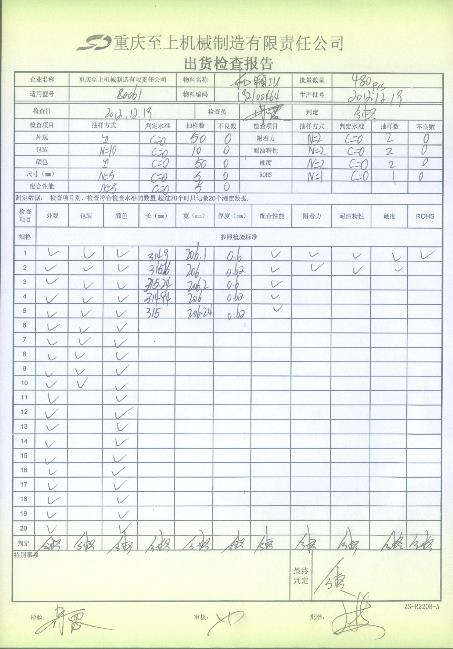 重庆至上机械制造有限责任公司
出货检查报告
企业名称 重庆至上机械制造有限责任公司 物料名称 批量数量 480
适用型号 物料编码 生产批号 2012.12.19
检查日 2012.12.19 检查员 判定 合格
检查项目 抽样方式 判定水准 抽样数 不良数 检查项目 抽样方式 判定水准 抽样数 不良数
外观 C=0 50 0 附着力 N=2 C=0 2 0
包装 N=10 C=0 10 0 耐油粉性 N=2 C=0 2 0
颜色 C=0 50 0 硬度 N=2 C=0 2 0
尺寸(mm) N=5 C=0 5 0 ROHS N=1 C=0 1 0
配合性能 N=5 C=0 5 0
测定数据: 检查项目别, 检查符合检查水准的数量,超过20个时只记录20个测定数据.
检查项目 外观 包装 颜色 长(mm) 宽(mm) 厚度(mm) 配合性能 附着力 硬度 ROHS
规格 参照检验标准
1 ✓ ✓ ✓ 314.9 206.1 0.6 ✓ ✓ ✓ ✓ ✓
2 ✓ ✓ ✓ 206 0.62 ✓ ✓ ✓ ✓
3 ✓ ✓ ✓ 315.24 206.2 0.6 ✓
4 ✓ ✓ ✓ 314.94 206 0.62 ✓
5 ✓ ✓ ✓ 315 206.24 0.62 ✓
6 ✓ ✓ ✓
7 ✓ ✓ ✓
8 ✓ ✓ ✓
9 ✓ ✓ ✓
10 ✓ ✓ ✓
11 ✓ ✓
12 ✓ ✓
13 ✓ ✓
14 ✓ ✓
15 ✓ ✓
16 ✓ ✓
17 ✓ ✓
18 ✓ ✓
19 ✓ ✓
20 ✓ ✓
判定 合格 合格 合格 合格 合格 合格 合格 合格 合格 合格 合格
特别事项
最终判定 合格
ZS-R220H-A
检验: 审核: 批准: